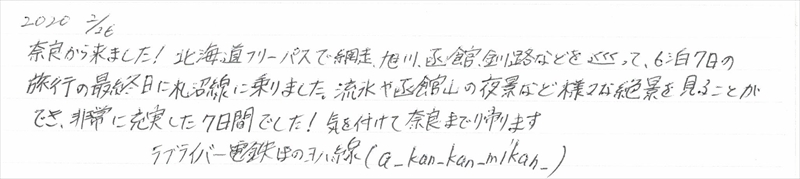 2020 2/26
奈良から来ました! 北海道フリーパスで網走、旭川、函館、釧路などを巡って、6泊7日の
旅行の最終日に札沼線に乗りました。流氷や函館山の夜景など様々な絶景を見ることが
でき、非常に充実した7日間でした! 気を付けて奈良まで帰ります
ラブライバー電鉄ほのヨハ線(a_kan_kan_mikan_)